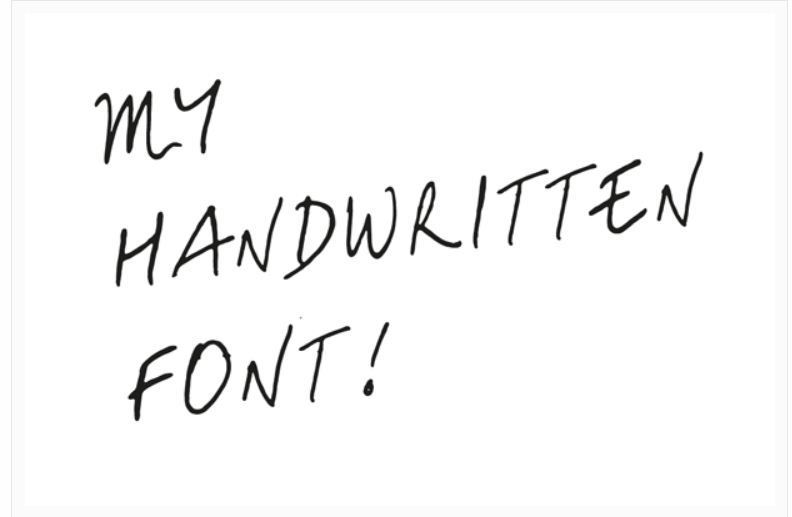 MY
HANDWRITTEN
FONT!